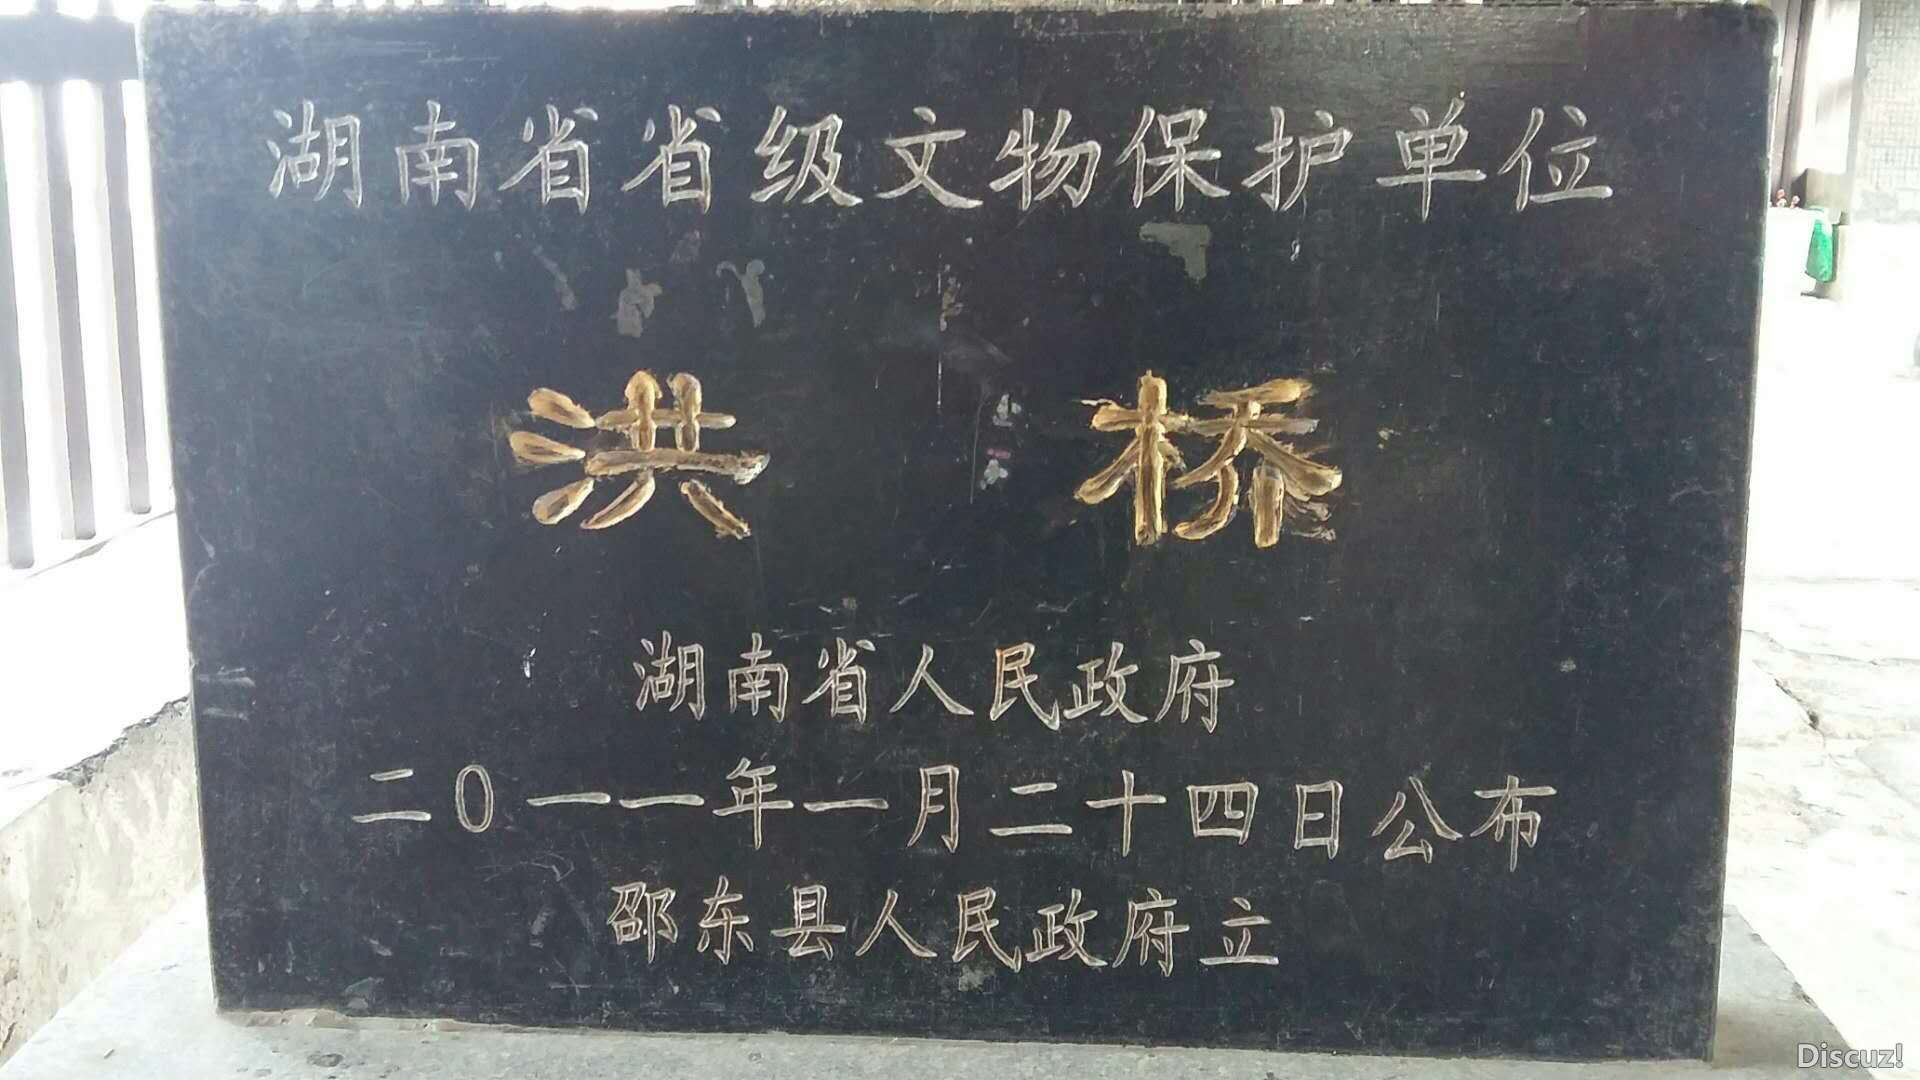 湖南省省级文物保护单位
洪桥
湖南省人民政府
二0一一年一月二十四日公布
邵东县人民政府立
Discuz!